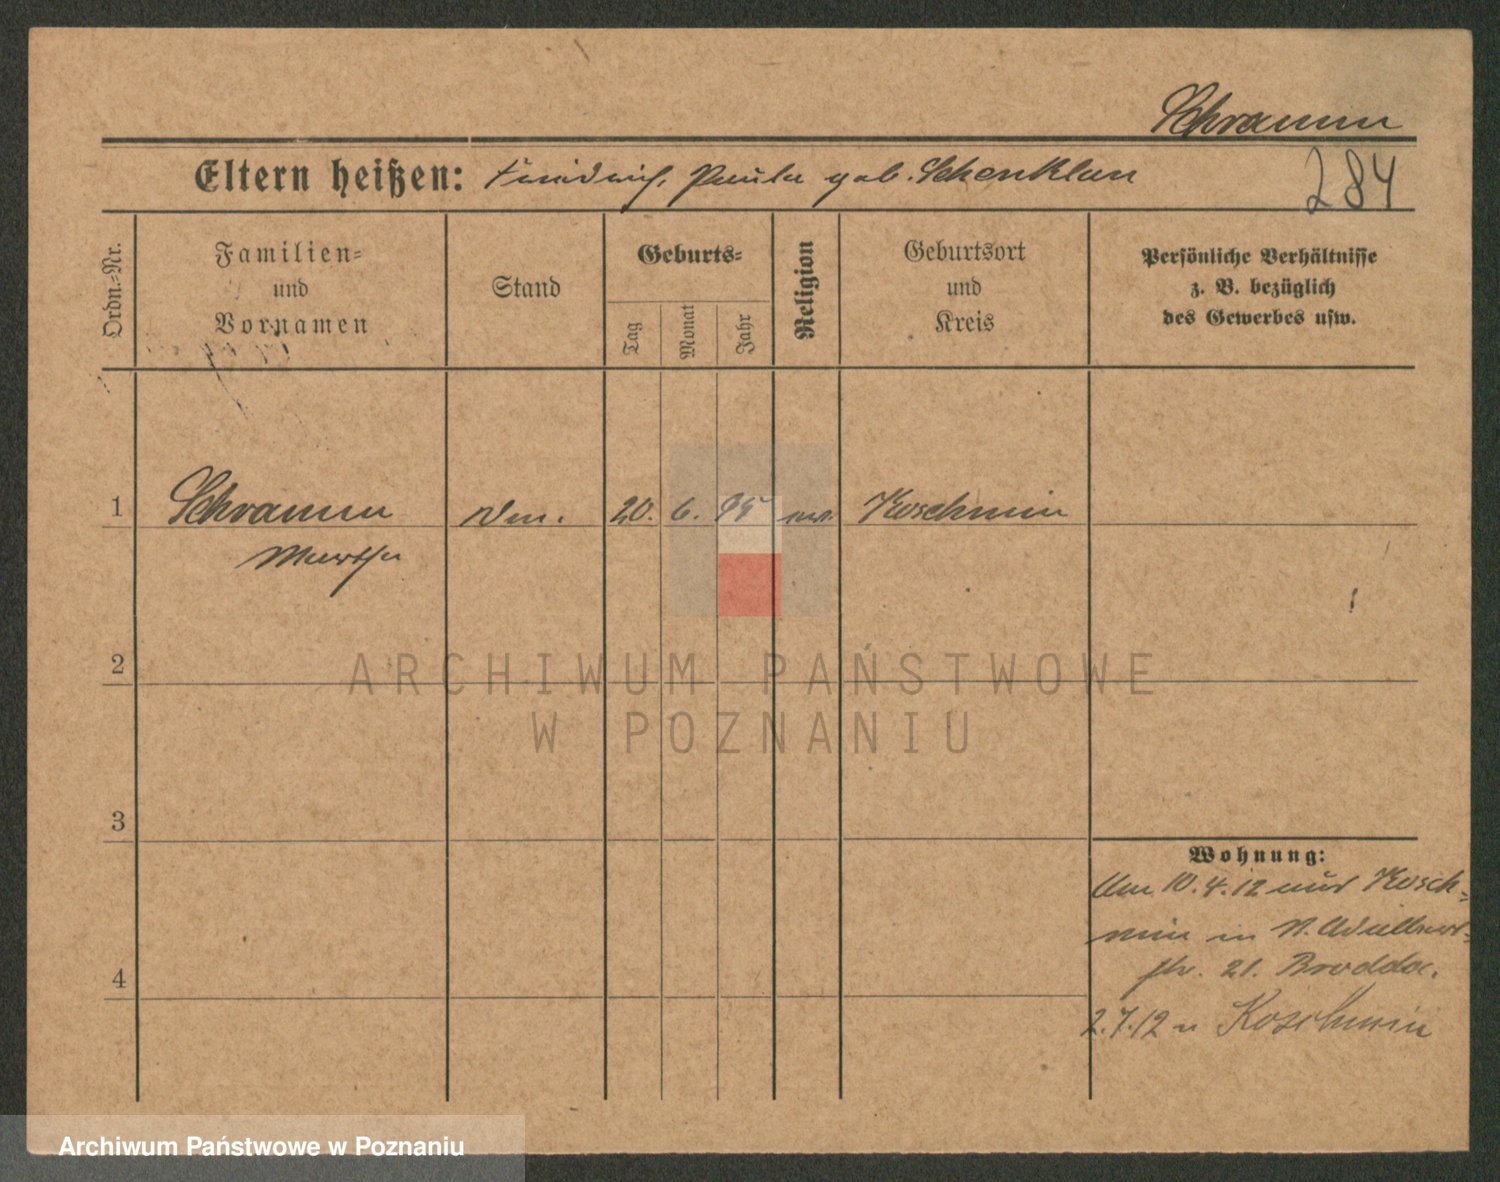 Schramm
Eltern heißen: Friedrich, Paula geb. Schenklan
284
Ordn.-Nr.
Familien-
und
Vornamen
Stand
Geburts-
Tag
Monat
Jahr
Religion
Geburtsort
und
Kreis
Persönliche Verhältnisse
z. B. bezüglich
des Gewerbes usw.
1 Schramm 20. 6. 95 ev. Koschmin
Martha
2
ARCHIWUM PAŃSTWOWE
W POZNANIU
3
Wohnung:
Am 10.4.12 aus Kosch-
min in
str. 21. Brodda.
4
2.7.12 n Koschmin
Archiwum Państwowe w Poznaniu